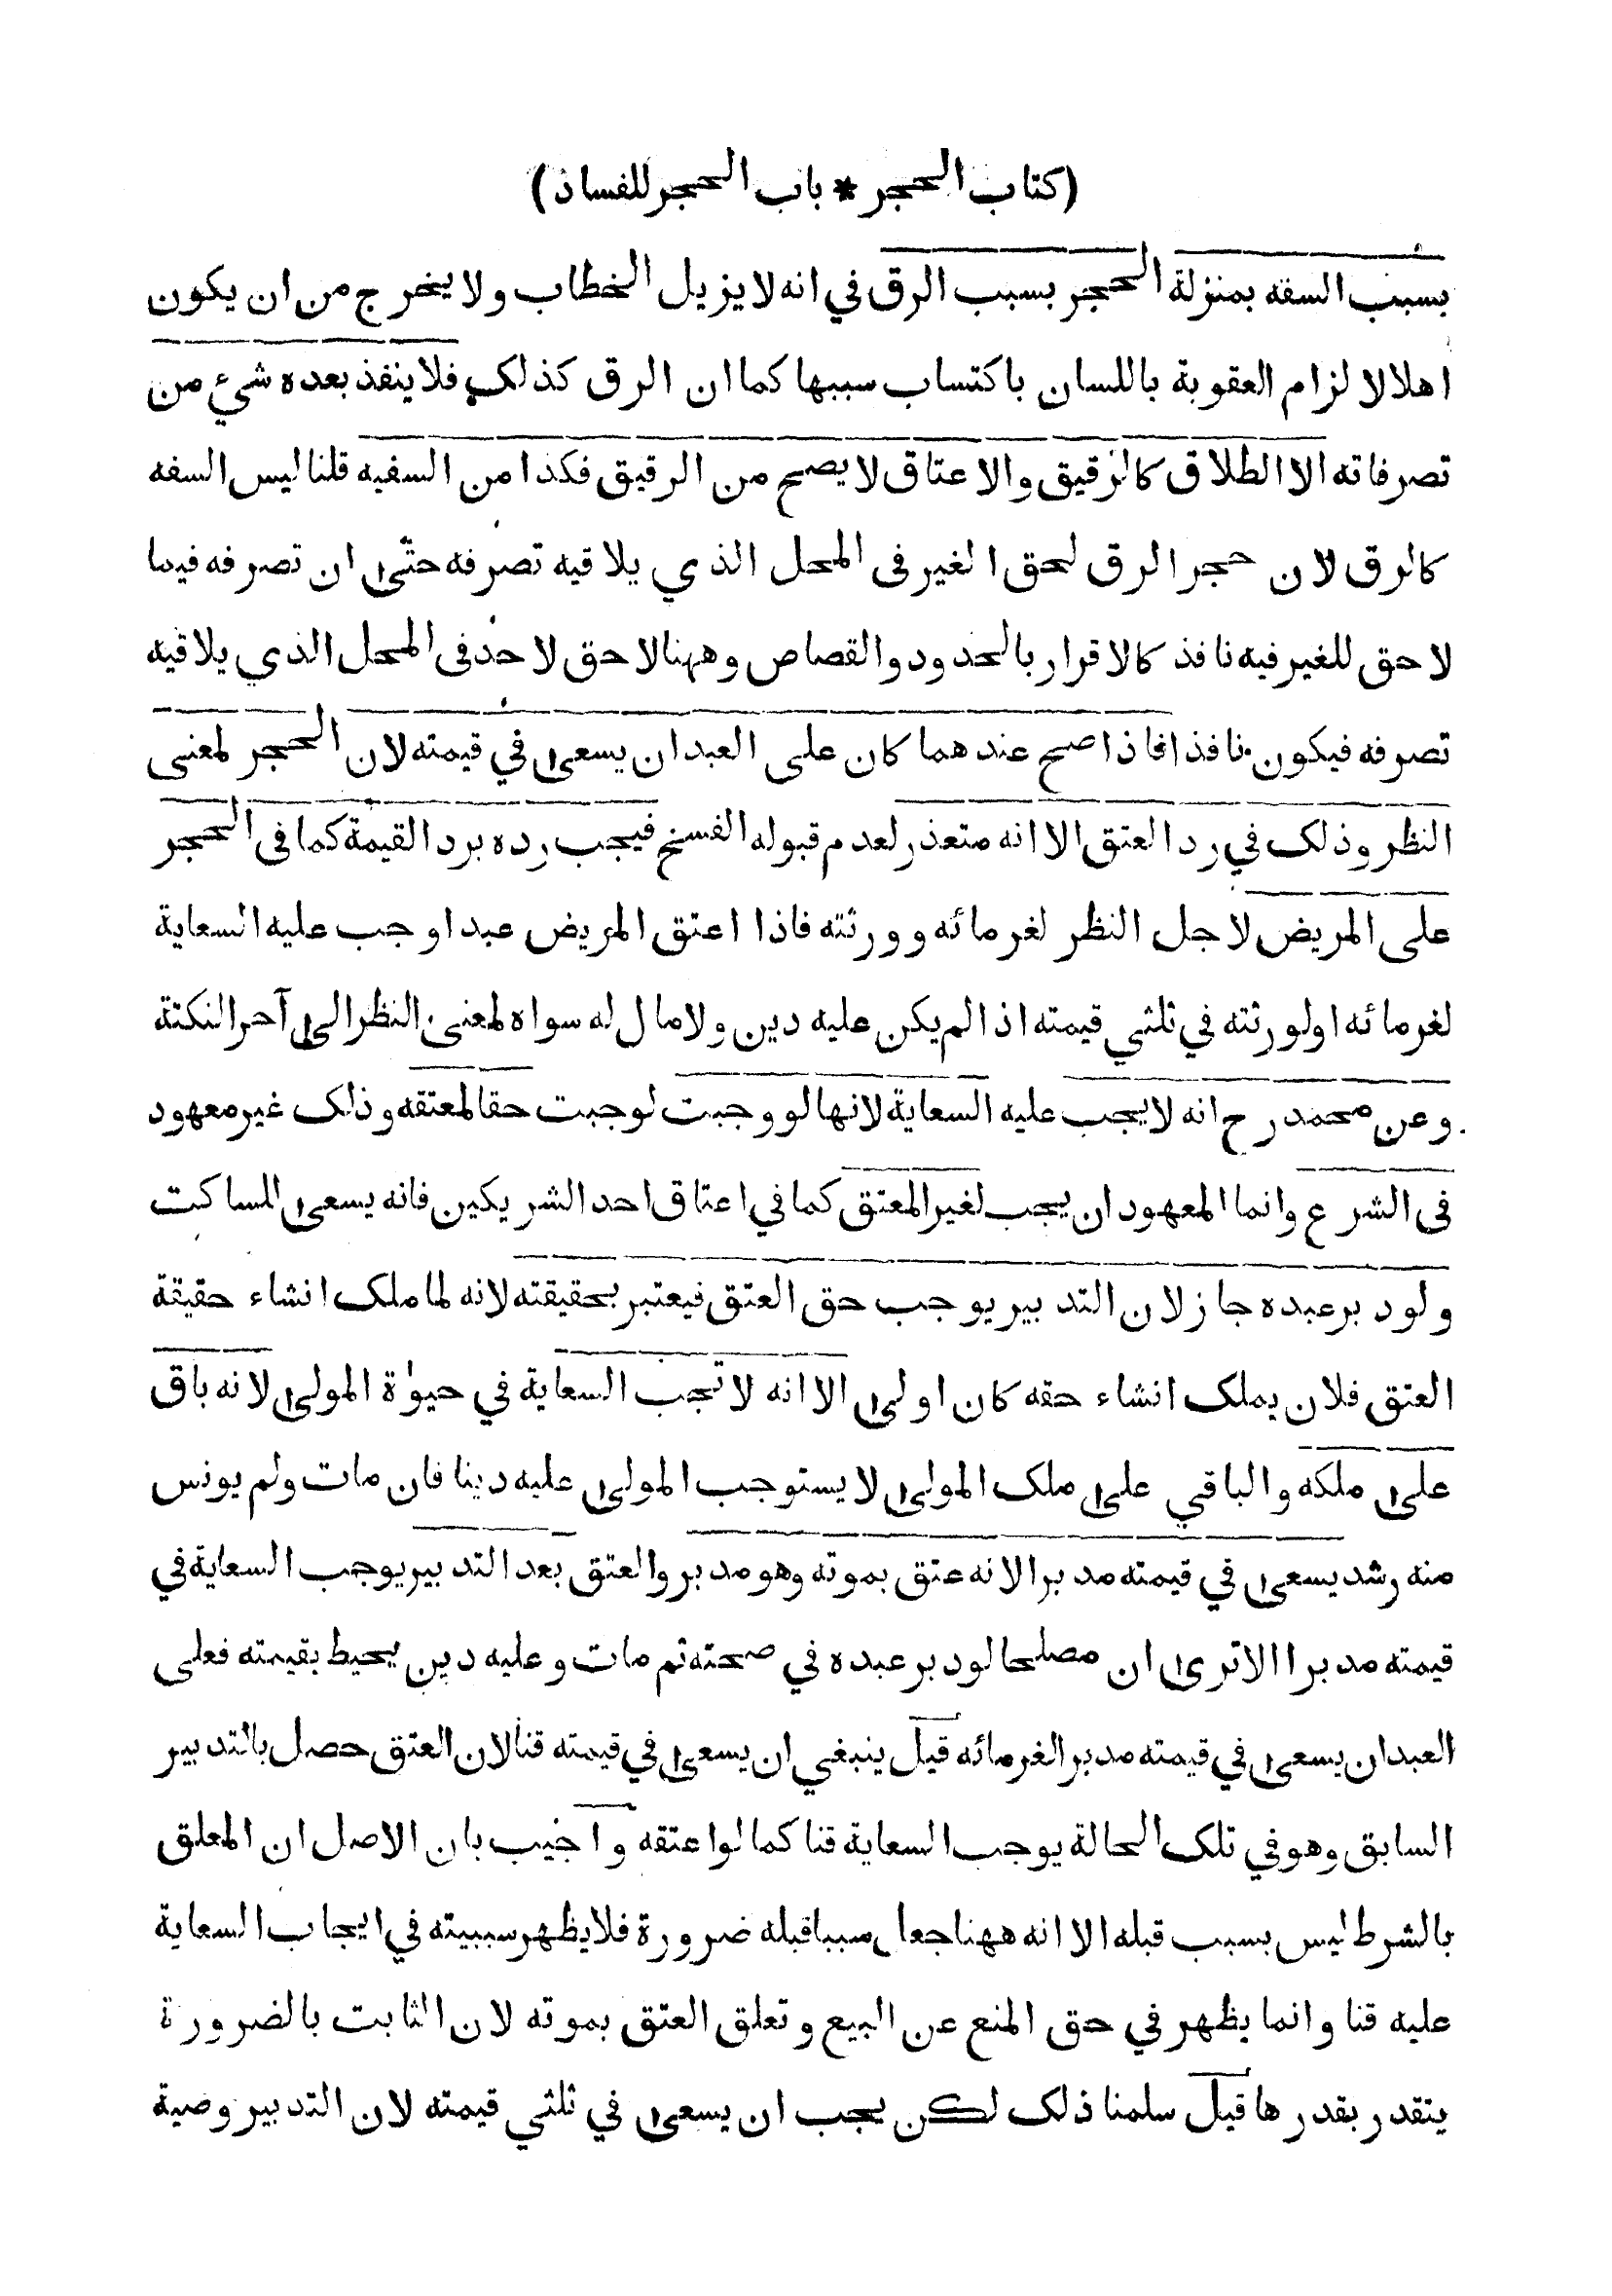 (كتاب الحجر * باب الحجر للفساد)
بسبب السفه بمنزلة الحجر بسبب الرق في انه لا يزيل الخطاب ولا يخرج من ان يكون
اهلا لالزام العقوبة باللسان باكتساب سببها كما ان الرق كذلك فلا ينفذ بعده شيء من
تصرفاته الا الطلاق كالرقيق والاعتاق لا يصح من الرقيق فكذا من السفيه قلنا ليس السفه
كالرق لان حجر الرق لحق الغير فى المحل الذي يلاقيه تصرفه حتى ان تصرفه فيما
لا حق للغير فيه نافذ كالاقرار بالحدود والقصاص وههنا لا حق لاحد فى المحل الذي يلاقيه
تصرفه فيكون نافذا فاذا صح عندهما كان على العبد ان يسعى في قيمته لان الحجر لمعنى
النظر وذلك في رد العتق الا انه متعذر لعدم قبوله الفسخ فيجب رده برد القيمة كما فى الحجر
على المريض لاجل النظر لغرمائه وورثته فاذا اعتق المريض عبدا وجب عليه السعاية
لغرمائه او لورثته في ثلثي قيمته اذا لم يكن عليه دين ولا مال له سواه لمعنى النظر الى آخر النكتة
وعن محمد رح انه لا يجب عليه السعاية لانها لو وجبت لوجبت حقا لمعتقه وذلك غير معهود
فى الشرع وانما المعهود ان يجب لغير المعتق كما في اعتاق احد الشريكين فانه يسعى للساكت
ولو دبر عبده جاز لان التدبير يوجب حق العتق فيعتبر بحقيقته لانه لما ملك انشاء حقيقة
العتق فلان يملك انشاء حقه كان اولى الا انه لا تجب السعاية في حيوة المولى لانه باق
على ملكه والباقي على ملك المولى لا يستوجب المولى عليه دينا فان مات ولم يونس
منه رشد يسعى في قيمته مدبرا لانه عتق بموته وهو مدبر والعتق بعد التدبير يوجب السعاية في
قيمته مدبرا الا ترى ان مصلحا لو دبر عبده في صحته ثم مات وعليه دين يحيط بقيمته فعلى
العبد ان يسعى في قيمته مدبرا لغرمائه قيل ينبغي ان يسعى في قيمته قنا لان العتق حصل بالتدبير
السابق وهو في تلك الحالة يوجب السعاية قنا كما لو اعتقه واجيب بان الاصل ان المعلق
بالشرط ليس بسبب قبله الا انه ههنا جعل سببا قبله ضرورة فلا يظهر سببيته في ايجاب السعاية
عليه قنا وانما يظهر في حق المنع عن البيع وتعلق العتق بموته لان الثابت بالضرورة
يتقدر بقدرها قيل سلمنا ذلك لكن يجب ان يسعى في ثلثي قيمته لان التدبير وصية